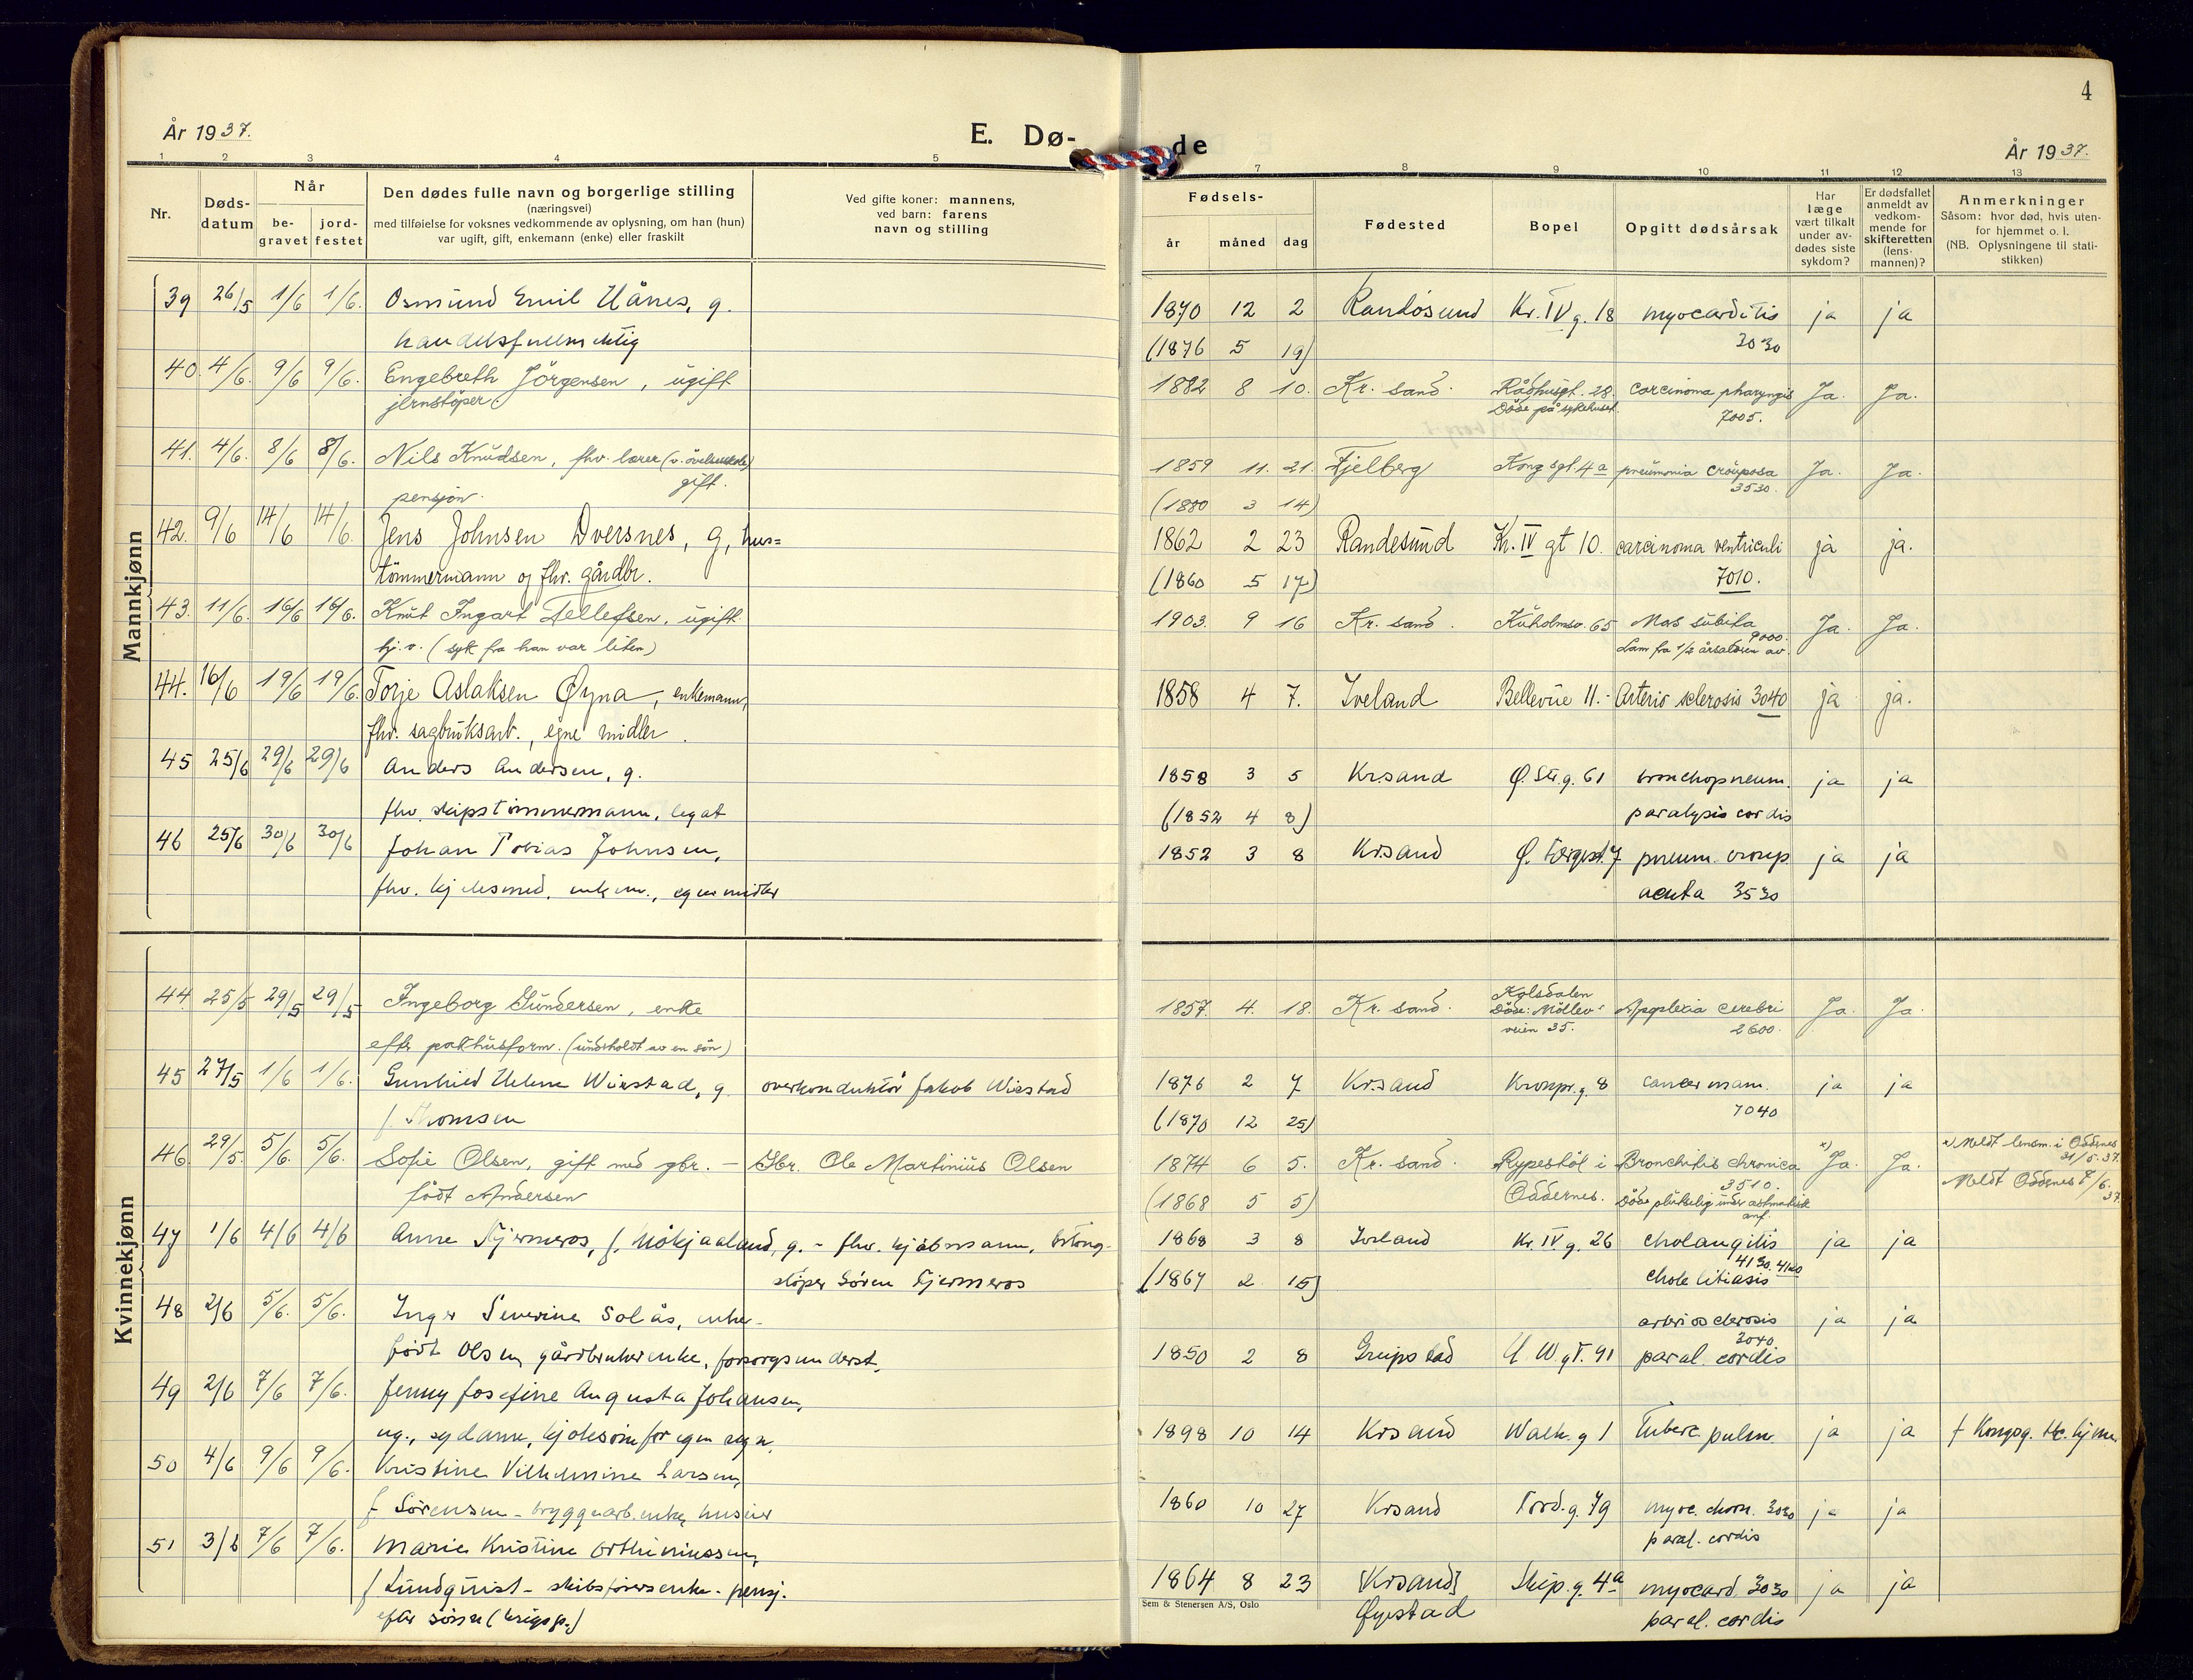 4
År 1937.
E. Dø-
de
År 1937.
1 2 3 4 5
7 8 9 10 11 12 13
Nr.
Dødsdatum
Når
begravet
jordfestet
Den dødes fulle navn og borgerlige stilling
(næringsvei)
med tilføielse for voksnes vedkommende av oplysning, om han (hun)
var ugift, gift, enkemann (enke) eller fraskilt
Ved gifte koner: mannens,
ved barn: farens
navn og stilling
Fødsels-
år måned dag
Fødested
Bopel
Opgitt dødsårsak
Har
læge
vært tilkalt
under av-
dødes siste
sykdom?
Er dødsfallet
anmeldt av
vedkom-
mende for
skifteretten
(lens-
mannen)?
Anmerkninger
Såsom: hvor død, hvis uten-
for hjemmet o. l.
(NB. Oplysningene til stati-
stikken)
Mannkjønn
39 26/5 1/6 1/6. Osmund Emil Hånes, g. 1870 12 2 Randøsund Kr. IV g. 18 myocarditis ja ja
handelsfullmektig (1876 5 19) 3030
40. 4/6. 9/6 9/6. Engebreth Jörgensen, ugift 1882 8 10. Kr. sand. Rådhusgt. 28. carcinoma pharyngis Ja. Ja.
jernstöper. Döde på sykehuset. 7005.
41. 4/6. 8/6 8/6. Nils Knudsen, fhv. lærer 1859 11. 21. Fjelberg Kongsgt. 4a pneumonia crouposa Ja. Ja.
gift. 3530.
pensjon. (1880 3 14)
42. 9/6 14/6 14/6. Jens Johnsen Dversnes, g, hus= 1862 2 23 Randesund Kr. IV gt 10. carcinoma ventriculi ja ja.
tömmermann og fhv. gårdbr. (1860 5 17) 7010.
43. 11/6. 16/6 16/6. Knut Ingart Tellefsen, ugift. 1903. 9 16 Kr. sand. Kuholmsv. 65 Mors subita Ja. Ja.
hj.v. (syk fra han var liten) 9000. Lam fra 1/2 årsalderen av.
44. 16/6 19/6 19/6. Torje Aslaksen Øyna, enkemann, 1858 4 7. Iveland Bellevue 11.- Arterio sclerosis 3040 ja ja.
fhv. sagbruksarb., egne midler.
45 25/6 29/6 29/6 Anders Andersen, g. 1858 3 5 Krsand Ø. Str.g. 61 bronchopneum. ja ja
fhv. skipstömmermann, legat (1852 4 8) paralysis cordis
46 25/6 30/6 30/6 Johan Tobias Johnsen, 1852 3 8 Krsand pneum. croup ja ja
fhv. kjelesmed, enkem., egne midler acuta 3530
Kvinnekjønn
44. 25/5 29/5 29/5 Ingeborg Gundersen, enke 1857. 4. 18. Kr. sand. Kolsdalen Apoplexia cerebri Ja. Ja.
efter pakhusform. (underholdt av en sön) Döde: Möllev- veien 35. 2600.
45 27/5 1/6 1/6. Gunhild Helene Wirstad, g. overkonduktör Jakob Wirstad 1876 2 7 Krsand Kronpr.g. 8 cancer mam. ja ja
f. Thomsen (1870 12 25) 7040
46. 29/5. 5/6. 5/6. Sofie Olsen, gift med gbr. - Gbr. Ole Martinius Olsen 1874 6 5. Kr. sand. Rypestöl i Bronchitis chronica x) Ja. Ja. x) Meldt lensm. i Oddernes 31/5.37.
födt Andersen (1868 5 5) Oddernes. 3510. Döde plutselig under astmatisk anf. Meldt Oddernes 7/6. 37.
47 1/6 4/6 4/6 Anne Fjermeros, f. Mökjaaland, g. - fhv. kjöbmann, 1868 3 8 Iveland Kr. IV g. 26 cholangitis ja ja
stöper Sören Fjermeros (1867 2 15) 4130. 4120 chole litiasis
48 2/6 5/6. 5/6. Inger Severine Solås, enke- arteriosclerosis ja ja
födt Olsen gårdbrukerenke, forsorgsunderst. 1850 2 8 Greipstad 3040 paral. cordis
49 2/6 7/6 7/6. Jenny Josefine Augusta Johansen,
ug., sydame, kjolesöm for egen regn. 1898 10 14 Krsand Walk. g 1 Tuberc. pulm. ja ja
50 4/6 9/6 9/6. Kristine Vilhelmine Larsen,
f Sörensen - bryggearb.enke, huseier 1860 10 27 Krsand Tord.g. 79 myoc. chron. 3030 ja ja
paral. cordis
51 3/6 7/6 7/6. Marie Kristine Orthiniussen,
f Lundquist - skibsförersenke - pensj. 1864 8 23 [Krsand] Skip.g. 4a myocard 3030 ja ja
efter sönn (krigsp.) Øyestad paral. cordis
Sem & Stenersen A/S, Oslo